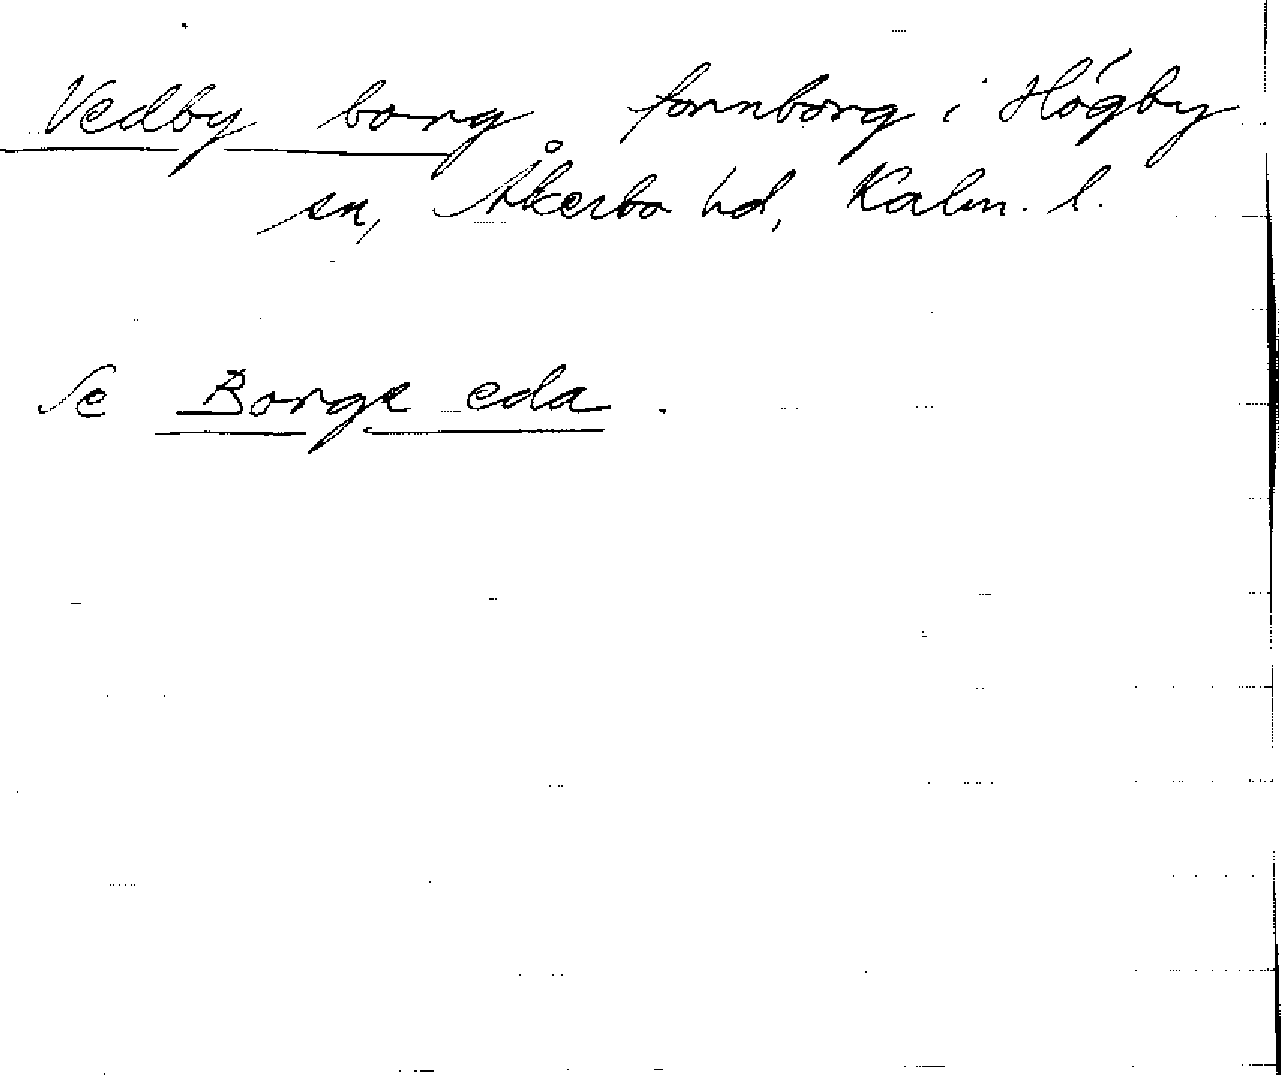 Vedby borg fornborg i Högby
sn, Åkerbo hd, Kalm. l.
Se Borga eda.